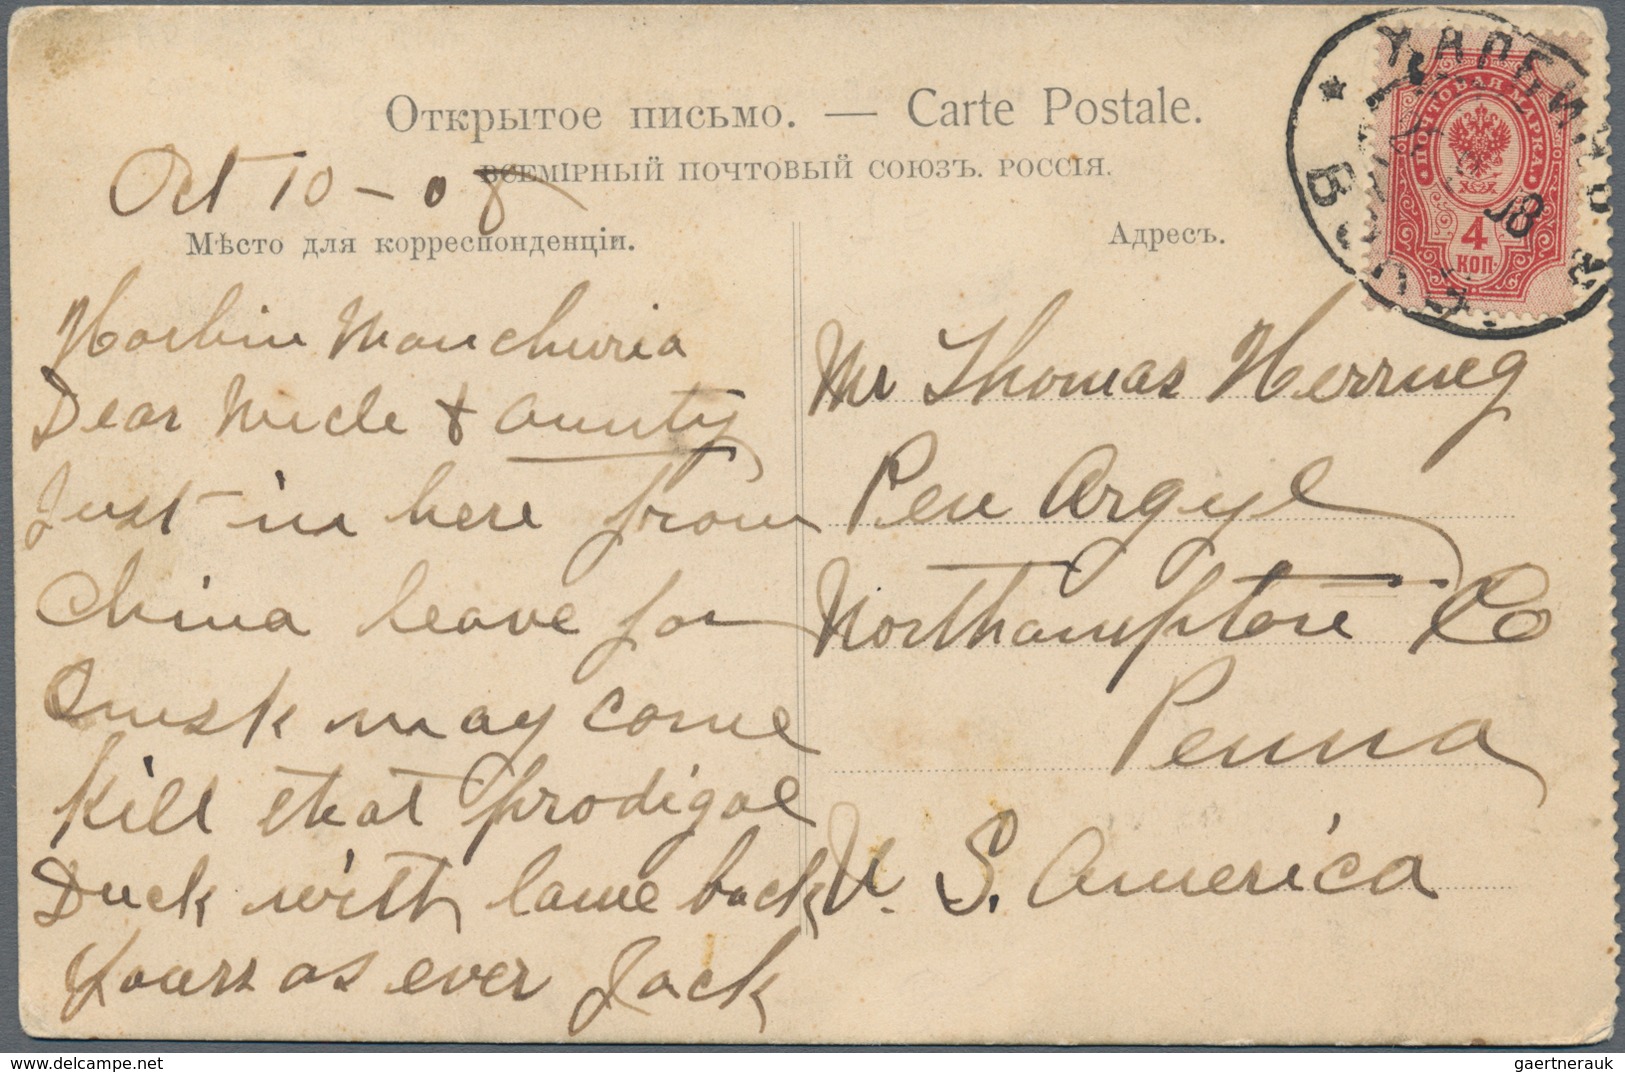 Открытое письмо. — Carte Postale.
ВСЕМІРНЫЙ ПОЧТОВЫЙ СОЮЗЪ. РОССІЯ.
Oct 10 - 08
Мѣсто для корреспонденціи.
Адресъ.
ПОЧТОВАЯ МАРКА
4
КОП.
ХАРБИНЪ
08
Harbin Manchuria
Dear Uncle & Aunty
Just in here from
China leave for
Omsk may come
Kill that prodigal
Duck with lame back
Yours as ever Jack
Mr Thomas Herring
Pen Argyl
Northampton Co
Penna
U. S. America
delcampe.net
gaertnerauk